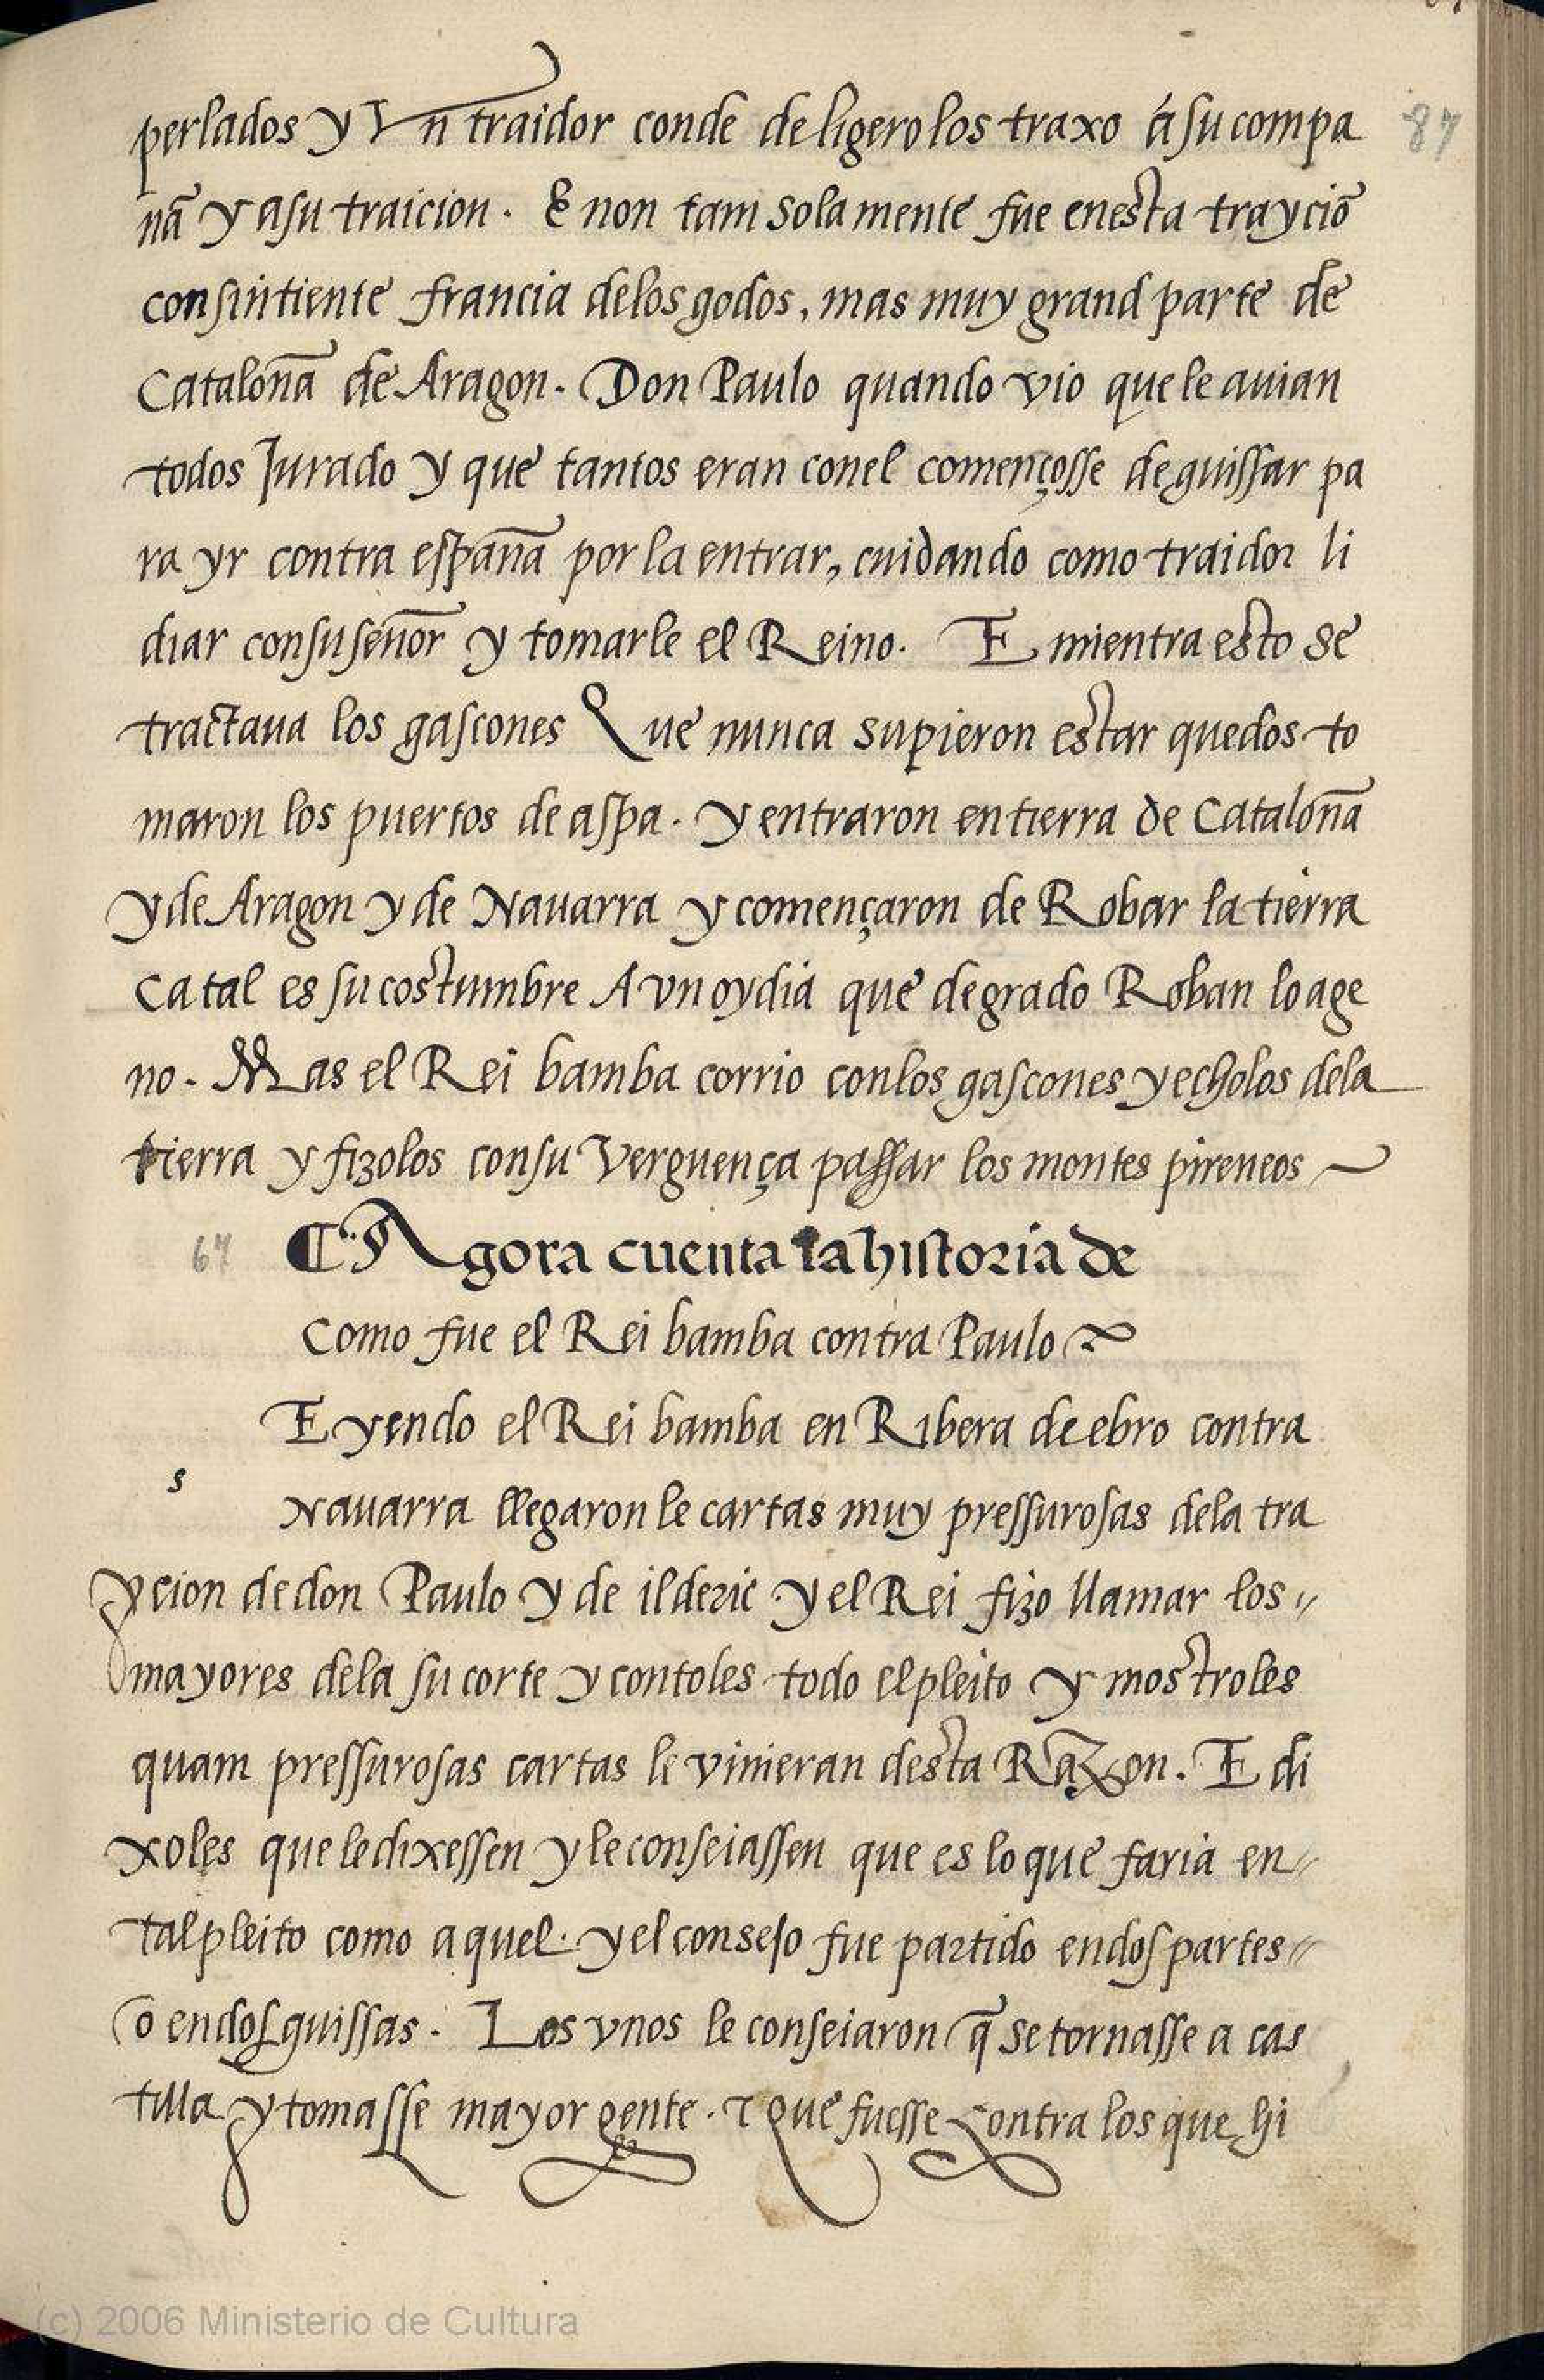 87
perlados y Vn traidor conde de ligero los traxo á su compa
nã y a su traicion. E non tam sola mente fue en esta trayciõ
consintiente francia de los godos, mas muy grand parte de
Cataloña de Aragon. Don Paulo quando vio que le auian
todos Jurado y que tantos eran con el començosse de guissar pa
ra yr contra españa por la entrar, cuidando como traidor li
diar con su señor y tomarle el Reino. E mientra esto se
tractaua los gascones Que nunca supieron estar quedos to
maron los puertos de aspa. y entraron en tierra de Cataloña
y de Aragon y de Nauarra y començaron de Robar la tierra
Ca tal es su costumbre Avn oy dia que de grado Roban lo age
no. Mas el Rei bamba corrio con los gascones y echolos de la
tierra y fizolos con su Verguença passar los montes pireneos
67 Agora cuenta la historia de
Como fue el Rei bamba contra Paulo
E yendo el Rei bamba en Ribera de ebro contra
s
Nauarra llegaron le cartas muy pressurosas de la tra
ycion de don Paulo y de ilderic. y el Rei fizo llamar los
mayores de la su corte y contoles todo el pleito y mostroles
quam pressurosas cartas le vinieran desta Razon. E di
xoles que le dixessen y le conseiassen que es lo que faria en
tal pleito como aquel. y el consejo fue partido en dos partes
o en dos guissas. Los vnos le conseiaron q̃ se tornasse a cas
tilla y tomasse mayor gente. τ que fuesse contra los que hi
(c) 2006 Ministerio de Cultura